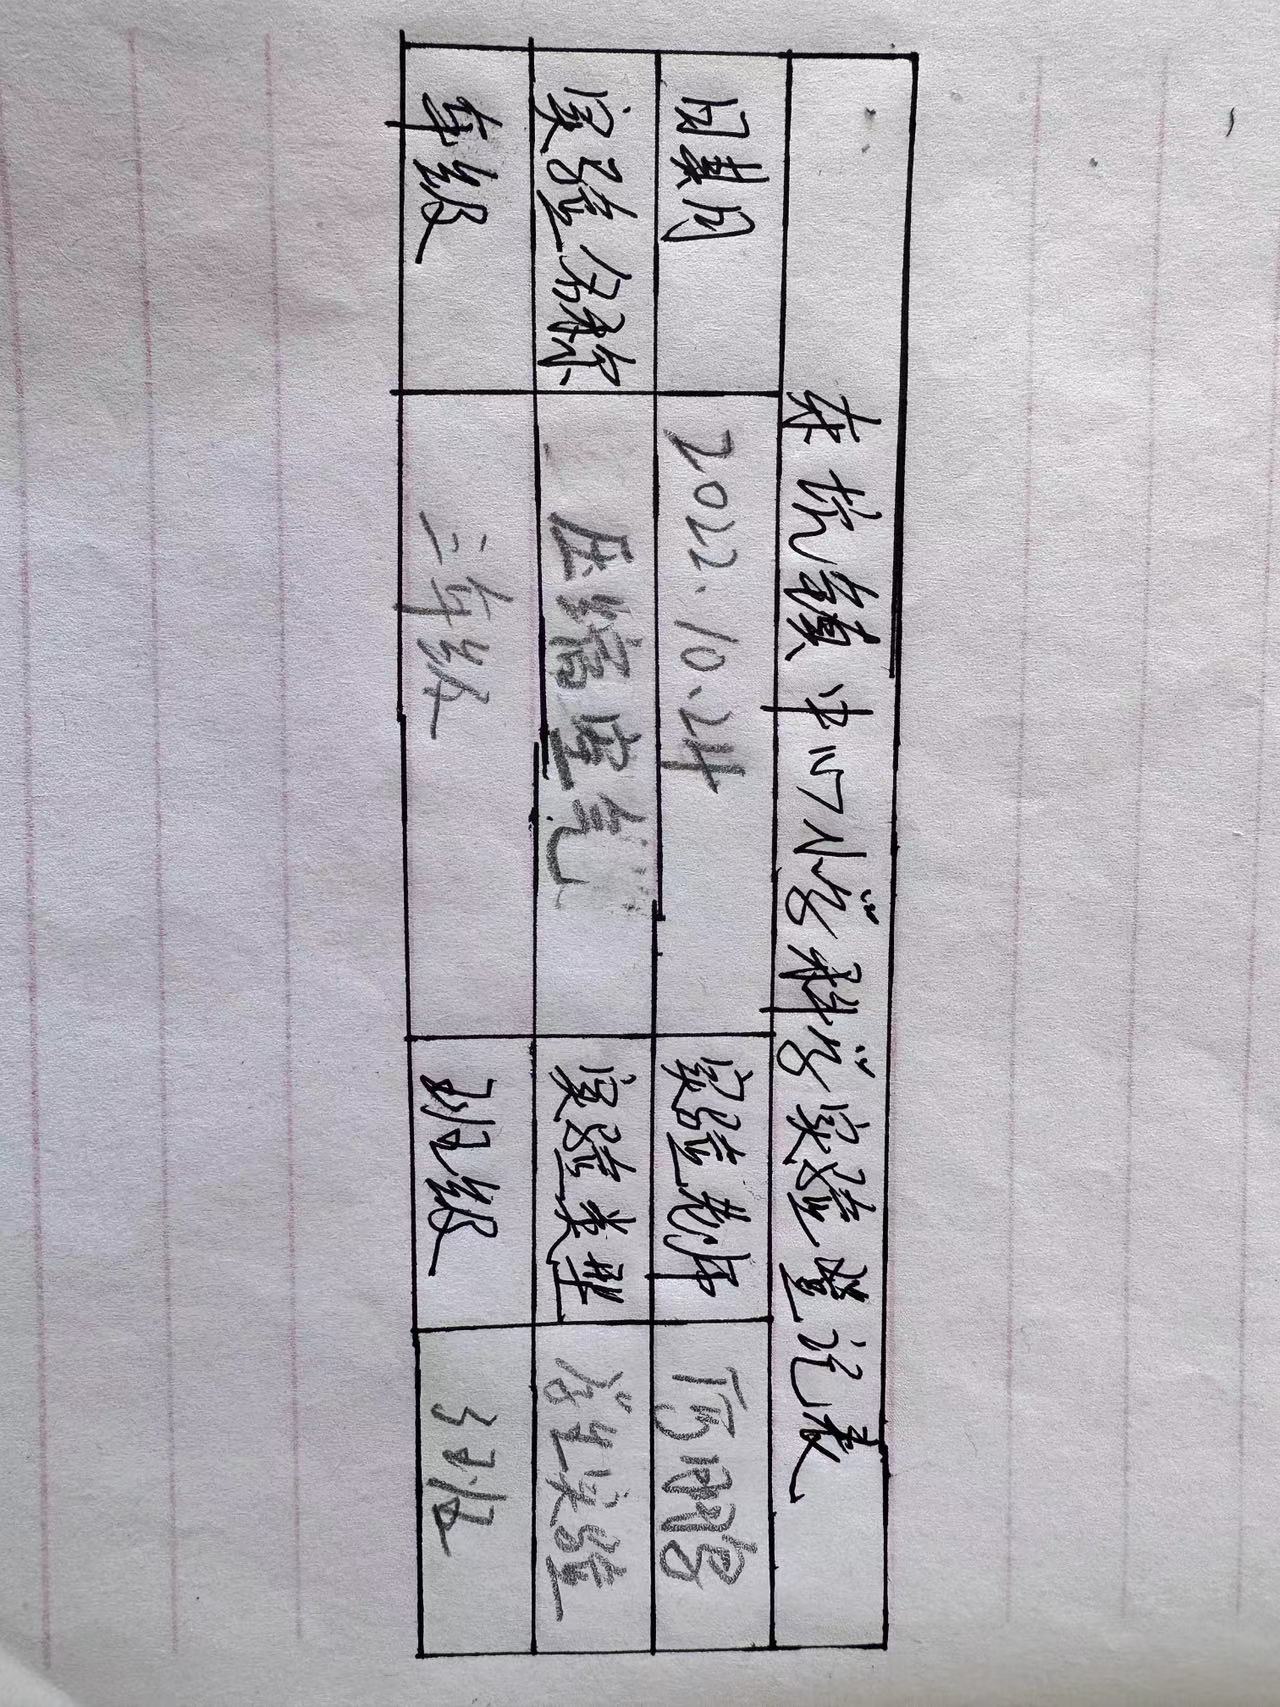 坑镇中心小学科学实验登记表
日期 2022.10.24 实验老师
实验名称 压缩空气 实验类型 学生实验
年级 三年级 班级 3班